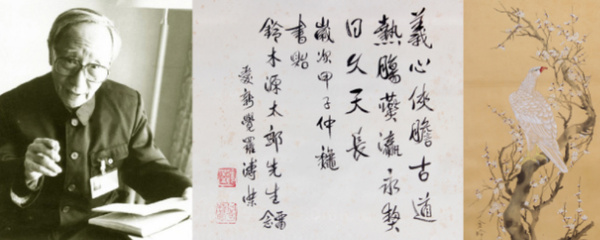 義心俠膽古道
熱腸漢瀛永契
日久天長
歲次甲子仲龝
書貽
鈴木源太郎先生
愛新覺羅溥傑